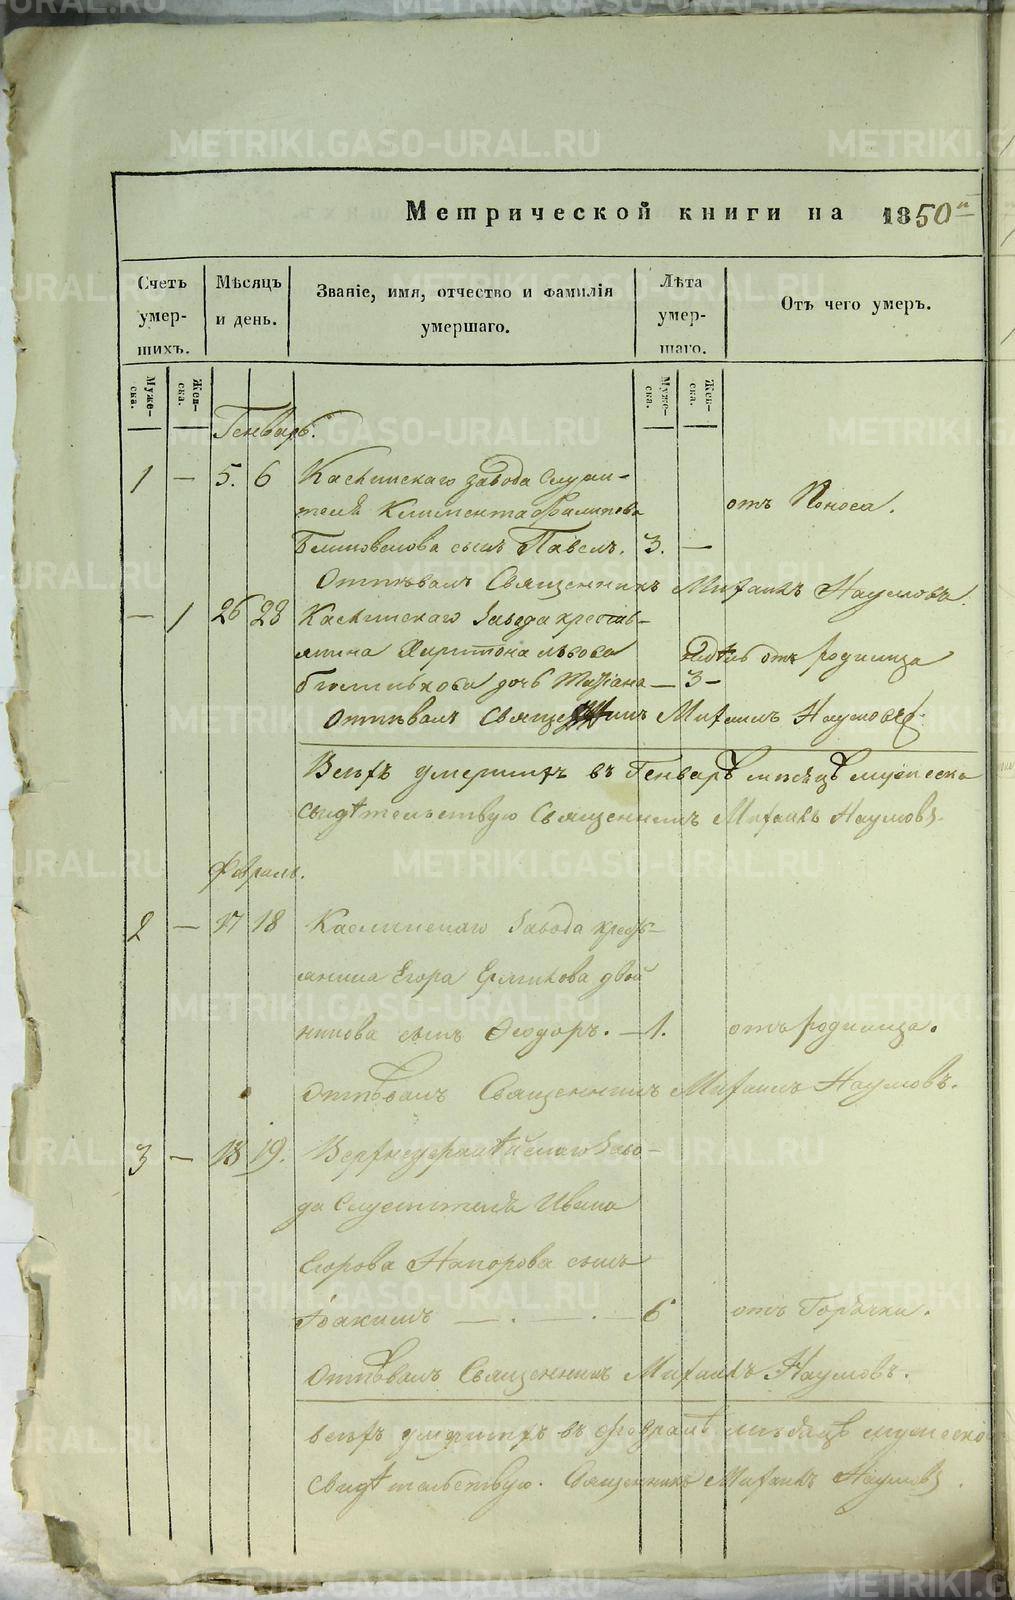 Метрической книги на 1850й
Счетъ умер-шихъ.
Мѣсяцъ и день.
Званіе, имя, отчество и фамилія умершаго.
Лѣта умер-шаго.
Отъ чего умеръ.
Муже-ска.
Жен-ска.
Муже-ска.
Жен-ска.
Генварь.
1 — 5. 6 Каслинскаго завода служи-
теля Климента Филипова отъ Поноса.
сынъ Павелъ. 3. —
Отпѣвалъ Священникъ Михаилъ Наумовъ.
— 1 26 28 Каслинскаго Завода кресть-
янина Харитона Львова отъ родимца
дочь — 3 —
Отпѣвалъ Священникъ Михаилъ Наумовъ.
Всехъ умершихъ въ Генварѣ месецѣ мужеска
свидѣтельствую Священникъ Михаилъ Наумовъ.
Февраль.
2 — 17 18 Каслинскаго Завода кресть-
янина Егора Ермилова Двой
никова сынъ Феодоръ. — 1. отъ родимца.
Отпѣвалъ Священникъ Михаилъ Наумовъ.
3 — 18 19. Верхнеуфалейскаго Заво-
да Служителя Ивана
Егорова сынъ
Іоакимъ — . — . — 6 отъ Горячки.
Отпѣвалъ Священникъ Михаилъ Наумовъ.
всехъ умершихъ въ феврале месецѣ мужеска
Свидѣтельствую. Священникъ Михаилъ Наумовъ.
METRIKI.GASO-URAL.RU